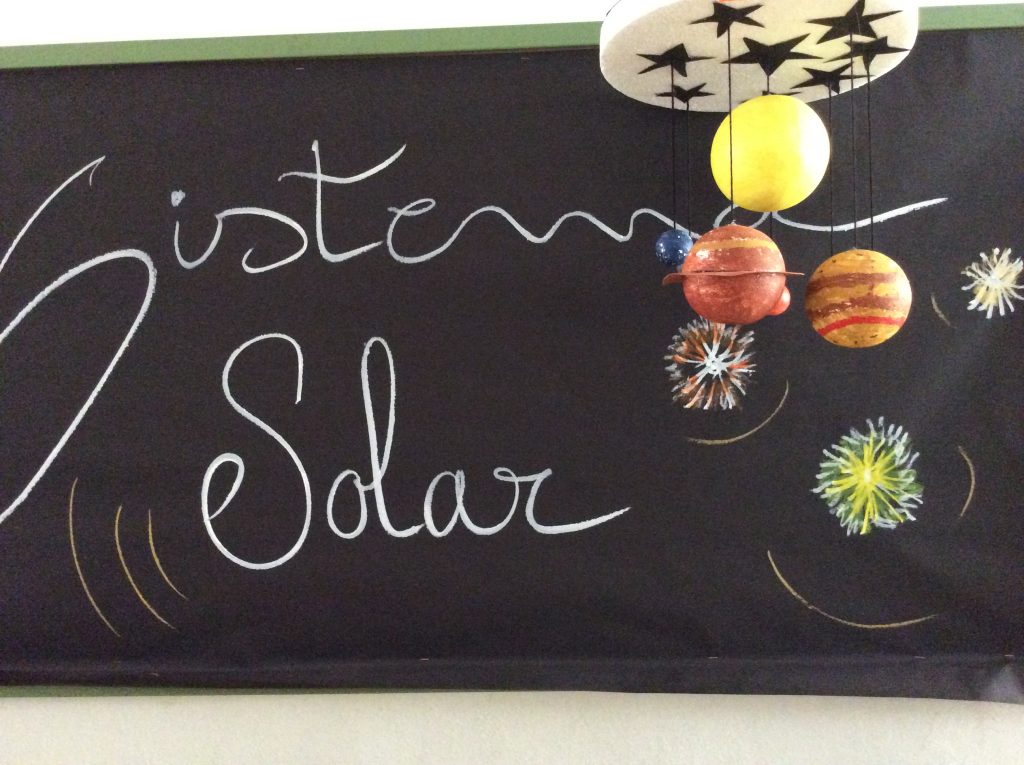 Sistema
Solar